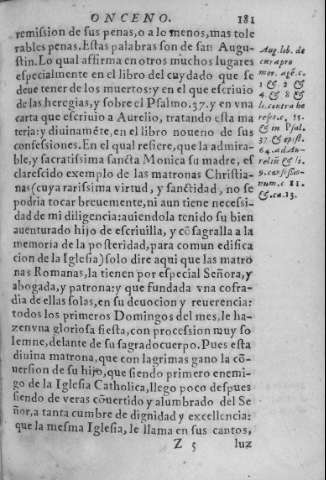 ONCENO. 181
remission de sus penas, o a lo menos, mas tole
rables penas. Estas palabras son de san Augu-
stin. Lo qual affirma en otros muchos lugares
especialmente en el libro del cuydado que se
deue tener de los muertos: y en el que escriuio
de las heregias, y sobre el Psalmo. 37. y en vna
carta que escriuio a Aurelio, tratando esta ma
teria: y diuinamẽte, en el libro noueno de sus
confessiones. En el qual refiere, que la admira-
ble, y sacratissima sancta Monica su madre, es
clarescido exemplo de las matronas Christia-
nas (cuya rarissima virtud, y sanctidad, no se
podria tocar breuemente, ni aun tiene necesi-
dad de mi diligencia: auiendola tenido su bien
auenturado hijo de escriuilla, y cõsagralla a la
memoria de la posteridad, para comun edifica
cion de la Iglesia) solo dire aqui que las matro
nas Romanas, la tienen por especial Señora, y
abogada, y patrona: y que fundada vna cofra-
dia de ellas solas, en su deuocion y reuerencia:
todos los primeros Domingos del mes, le ha-
zen vna gloriosa fiesta, con procession muy so
lemne, delante de su sagrado cuerpo. Pues esta
diuina matrona, que con lagrimas gano la cõ-
uersion de su hijo, que siendo primero enemi-
go de la Iglesia Catholica, llego poco despues
siendo de veras cõuertido y alumbrado del Se
ñor, a tanta cumbre de dignidad y excellencia:
que la mesma Iglesia, le llama en sus cantos,
Z 5 luz
Aug. lib. de
cura pro
mor. agẽ. c.
1 & 2 &
4 & 8 &
li. contra he
reses. c. 53.
& in Psal.
37 & epist.
64. ad Au-
reliũ & li.
9. confessio-
num. c 11.
& ca. 13.